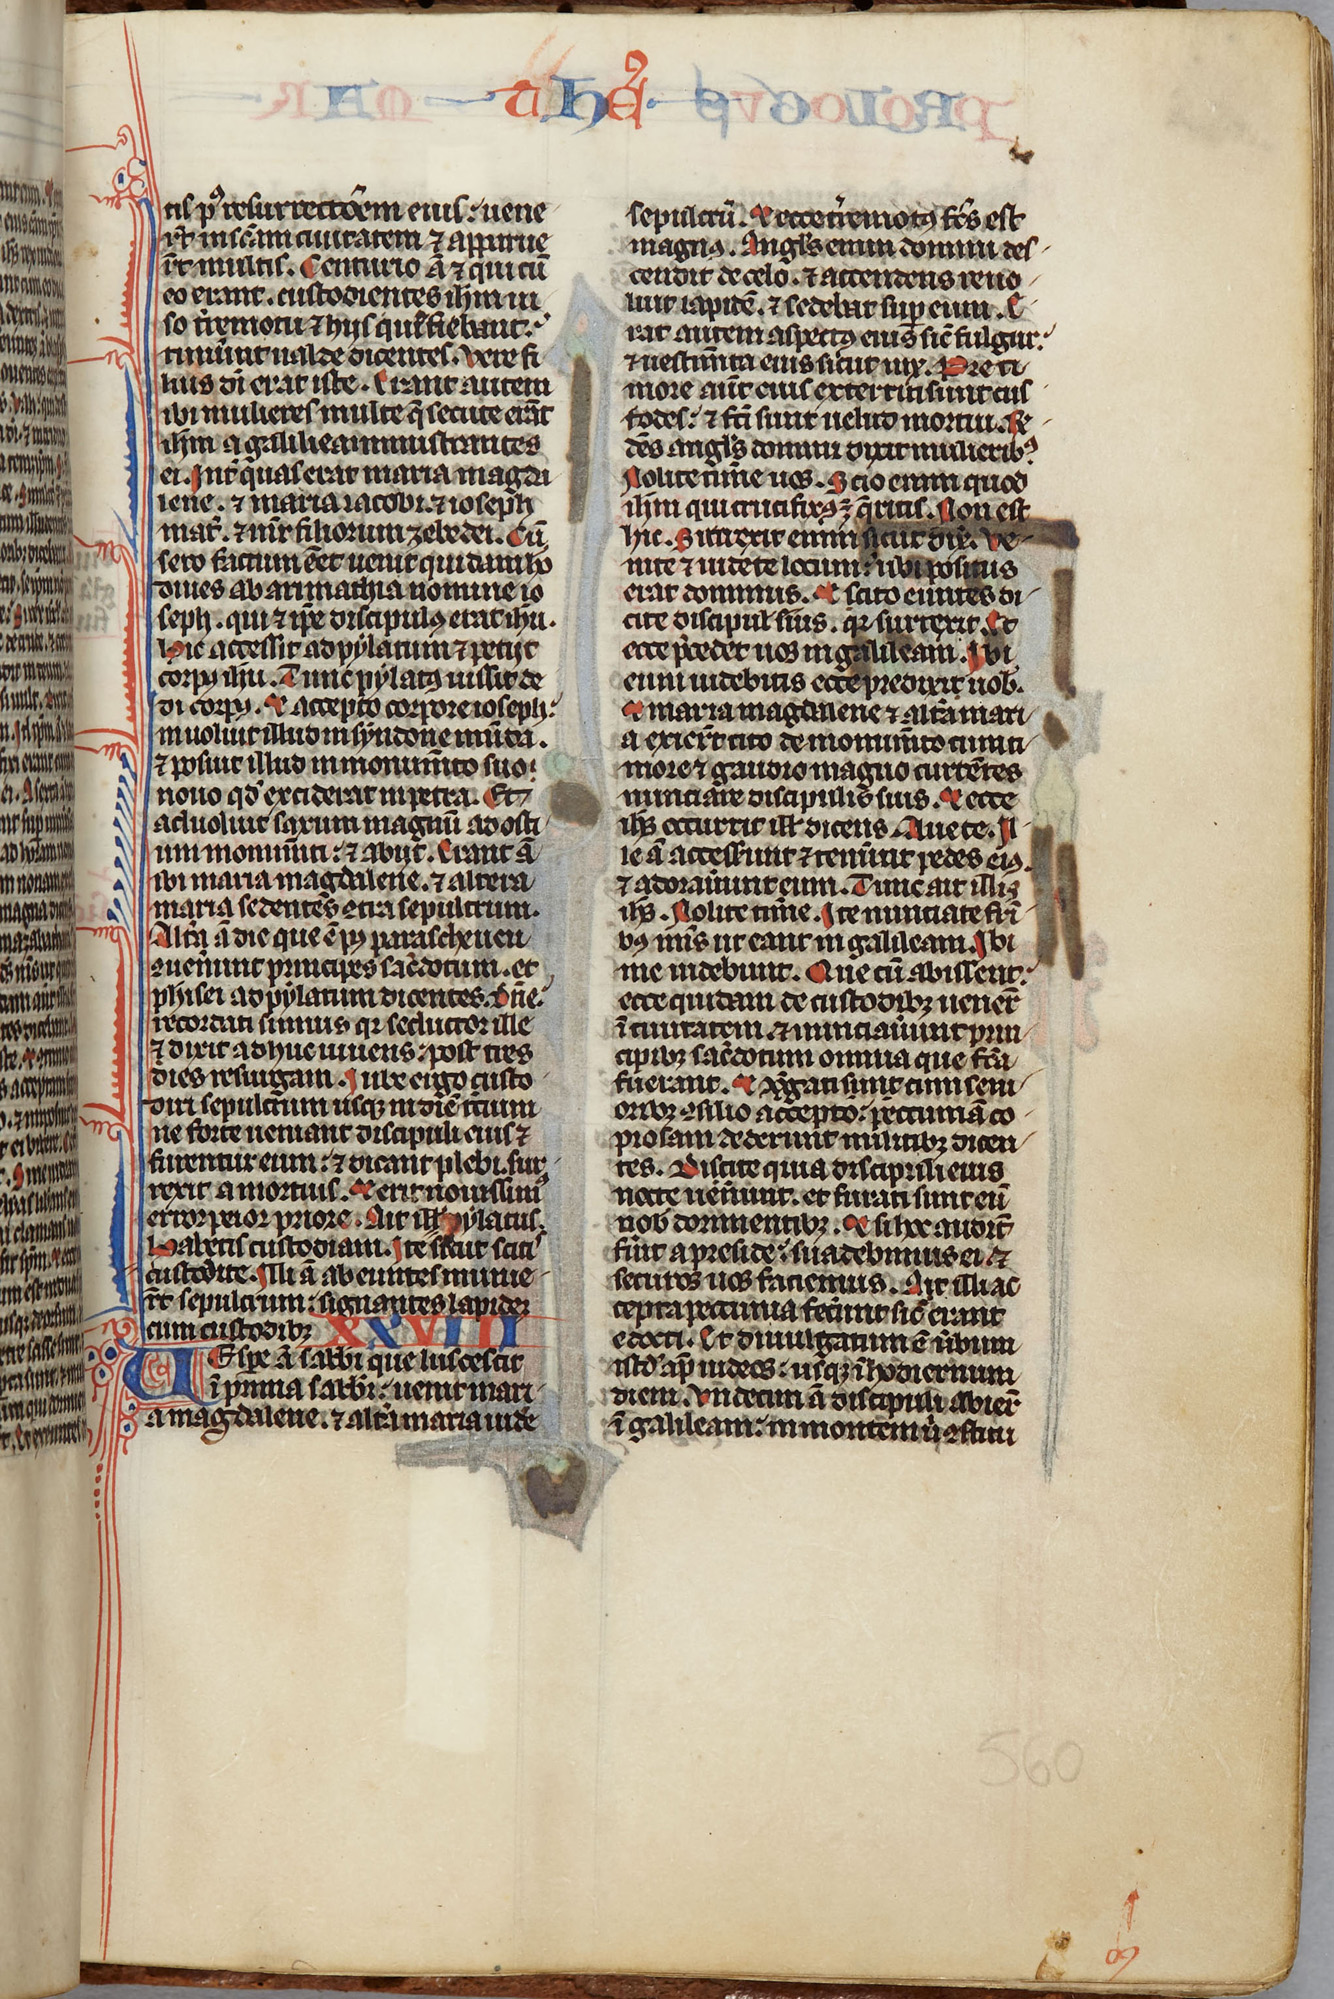 theꝰ
tis pꝰ resurrectõem eius: uene
rt̃ in scãm ciuitatem ⁊ apparue
rt̃ multis. Centurio ã ⁊ qui cũ
eo erant. custodientes ihm ui
so tremotu ⁊ hijs que fiebant:
timuerũt ualde dicentes. Vere fi
lius dĩ erat iste. Erant autem
ibi mulieres multe q̃ secute erãt
ihm a galileam ministrantes
ei. Int̃ quas erat maria magda
lene. ⁊ maria iacobi. ⁊ ioseph
mat̃. ⁊ mr̃ filiorum zebedei. Cũ
sero factum eẽt uenit quidam ho
diues ab arimathia nomine io
seph. qui ⁊ ip̃e discipulꝰ erat ihũ.
Hic accessit ad pylatum ⁊ petijt
corpꝰ ihũ. Tunc pylatꝰ iussit de
di corpꝰ. Et accepto corpore ioseph:
inuoluit illud in syndone mũda.
⁊ posuit illud in monumẽto suo:
nouo qd̃ exciderat in petra. Et
aduoluit saxum magnũ ad osti
um monumẽti: ⁊ abijt. Erant ã
ibi maria magdalene. ⁊ altera
maria sedentes ꝯtra sepulcrum.
Altã ã die que ẽ pꝰ parascheuen
ꝯuenerunt principes sac̃dotum. et
phisei ad pylatum dicentes. Dñe
recordati sumus qr̃ seductor ille
⁊ dixit adhuc uiuens: post tres
dies resurgam. Iube ergo custo
diri sepulcrum usqꝫ in diẽ t̃cium
ne forte ueniant discipuli eius ⁊
furentur eum: ⁊ dicant plebi. sur
rexit a mortuis. Et erit nouissimꝰ
error peior priore. Ait ill̃ pylatus.
Habetis custodiam. Ite sicut scitis
custodite. Illi ã abeuntes munie
rt̃ sepulcrum: signantes lapidẽ
cum custodibꝫ XXVIII
VEspe ã sabbi que lucescit
ĩ prima sabbi: uenit mari
a magdalene. ⁊ altã maria uide
sepulcrũ. Et ecce tremotꝰ fc̃s est
magnꝰ. Angls̃ enim domini des
cendit de celo. ⁊ accendens reuo
luit lapidẽ. ⁊ sedebat sup eum. E
rat autem aspectꝰ eius sic̃ fulgur:
⁊ uestimẽta eius sicut nix. Pre ti
more aũt eius exterriti sunt cus
todes: ⁊ fc̃i sunt uelud mortui. R̃
dẽs angls̃ domini dixit mulieribꝰ
Nolite tim̃e uos. Scio enim quod
ihm qui crucifixꝰ ẽ q̃ritis. Non est
hic. Surrexit enim sicut dix̃. Ve
nite ⁊ uidete locum: ubi positus
erat dominus. Et scito euntes di
cite discipul̃ suis. qr̃ surrexit. Et
ecce p̃cedet uos in galileam. Ibi
eum uidebitis ecce predixit nob̃.
Et maria magdalene ⁊ altã mari
a exiert̃ cito de monumẽto cum ti
more ⁊ gaudio magno currẽtes
nunciare discipulis suis. Et ecce
ihs̃ occurrit ill̃ dicens. Auete. Il
le ã accesserunt ⁊ tenuerunt pedes eiꝰ.
⁊ adorauerunt eum. Tunc ait illis
ihs̃. Nolite tim̃e. Ite nunciate fr̃i
bꝰ meis ut eant in galileam. Ibi
me uidebunt. Que cũ abissent:
ecce quidam de custodibꝫ uenert̃
ĩ ciuitatem. ⁊ nunciauerunt prin
cipibꝫ sac̃dotum omnia que fc̃a
fuerant. Et ꝯg̃gati sunt cum seni
oribꝫ ꝯsilio accepto: peccuniã co
piosam dederunt militibꝫ dicen
tes. Dicite quia discipuli eius
nocte uenerunt. et furati sunt eũ
nob̃ dormientibꝫ. Et si hoc auditũ
fuerit a preside: suadebimus ei. ⁊
securos uos faciemus. At illi ac
cepta pecunia fecerunt sic̃ erant
edocti. Et diuulgatum ẽ ũbum
istd̃ ap̃ iudeos: usqꝫ ĩ hodiernum
diem. Vndecim ã discipuli abiert̃
ĩ galileam: in montem ũ ꝯstitu
560